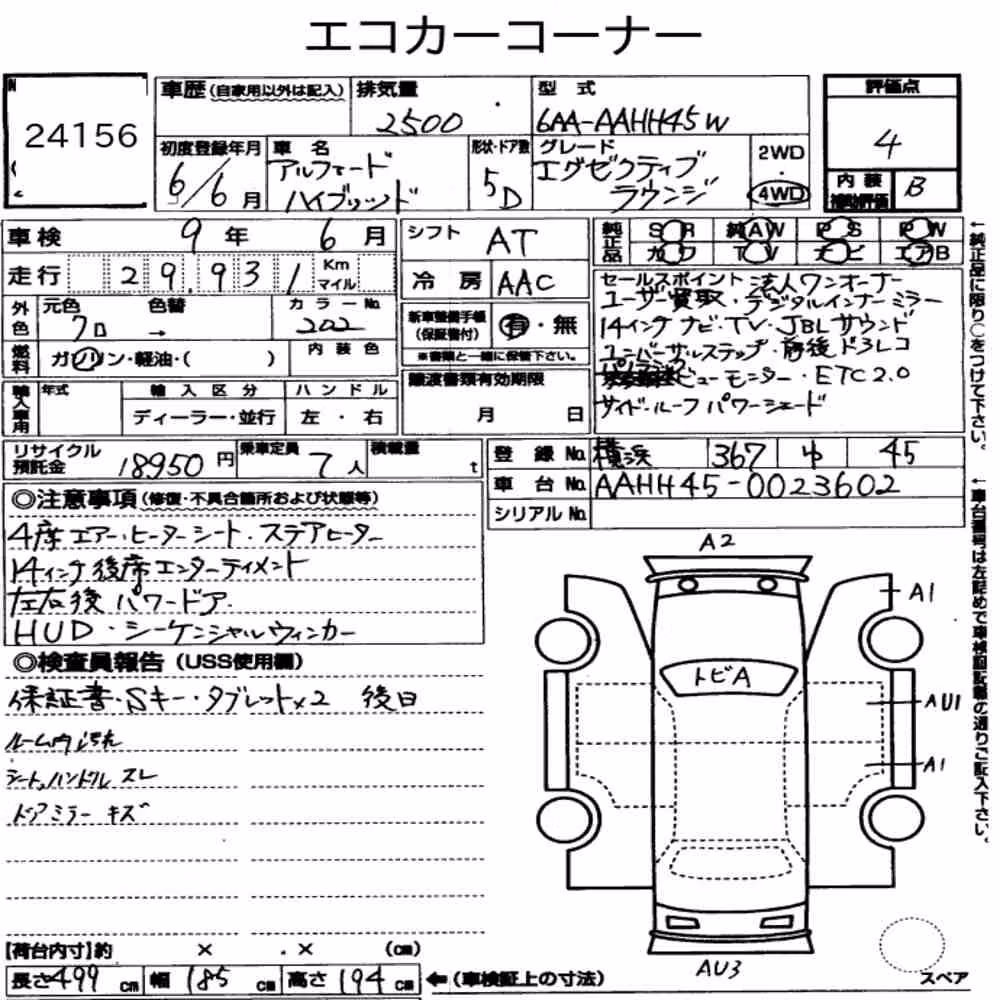 エコカーコーナー
24156
車歴 (自家用以外は記入)
排気量
2500
型式
6AA-AAHH45W
評価点
4
内装
補助評価
B
初度登録年月
6/6月
車名
アルファード
ハイブリッド
形状・ドア数
5D
グレード
エグゼクティブ
ラウンジ
2WD
4WD
車検 9年 6月
走行 29,931 Km マイル
シフト AT
冷房 AAC
純正品
SR 純AW PS PW
カワ TV ナビ エアB
外色
元色 色替 カラーNo.
クロ → 202
燃料
ガソリン・軽油・( )
内装色
新車整備手帳
(保証書付)
有・無
※書類と一緒に保管下さい。
セールスポイント 法人ワンオーナー
ユーザー買取・デジタルインナーミラー
14インチナビ・TV・JBLサウンド
ユニバーサルステップ・前後ドラレコ
パノラミックビューモニター・ETC2.0
サイド・ルーフパワーシェード
←純正品に限り○をつけて下さい。
輸入車用
年式
輸入区分
ディーラー・並行
ハンドル
左・右
譲渡書類有効期限
月 日
リサイクル
預託金
18950円
乗車定員
7人
積載量
t
登録No. 横浜 367 ゆ 45
車台No. AAHH45-0023602
シリアルNo.
←車台番号は左詰めで車検証記載の通りご記入下さい。
◎注意事項 (修復・不具合箇所および状態等)
4席エアー・ヒーターシート・ステアヒーター
14インチ後席エンターテイメント
左右後パワードア
HUD・シーケンシャルウィンカー
◎検査員報告 (USS使用欄)
保証書・Sキー・タブレット×2 後日
ルーム内汚れ
シート,ハンドルスレ
ドアミラーキズ
A2
A1
トビA
AU1
A1
AU3
スペア
[荷台内寸]約 × . × (cm)
長さ499cm 幅185cm 高さ194cm ←(車検証上の寸法)